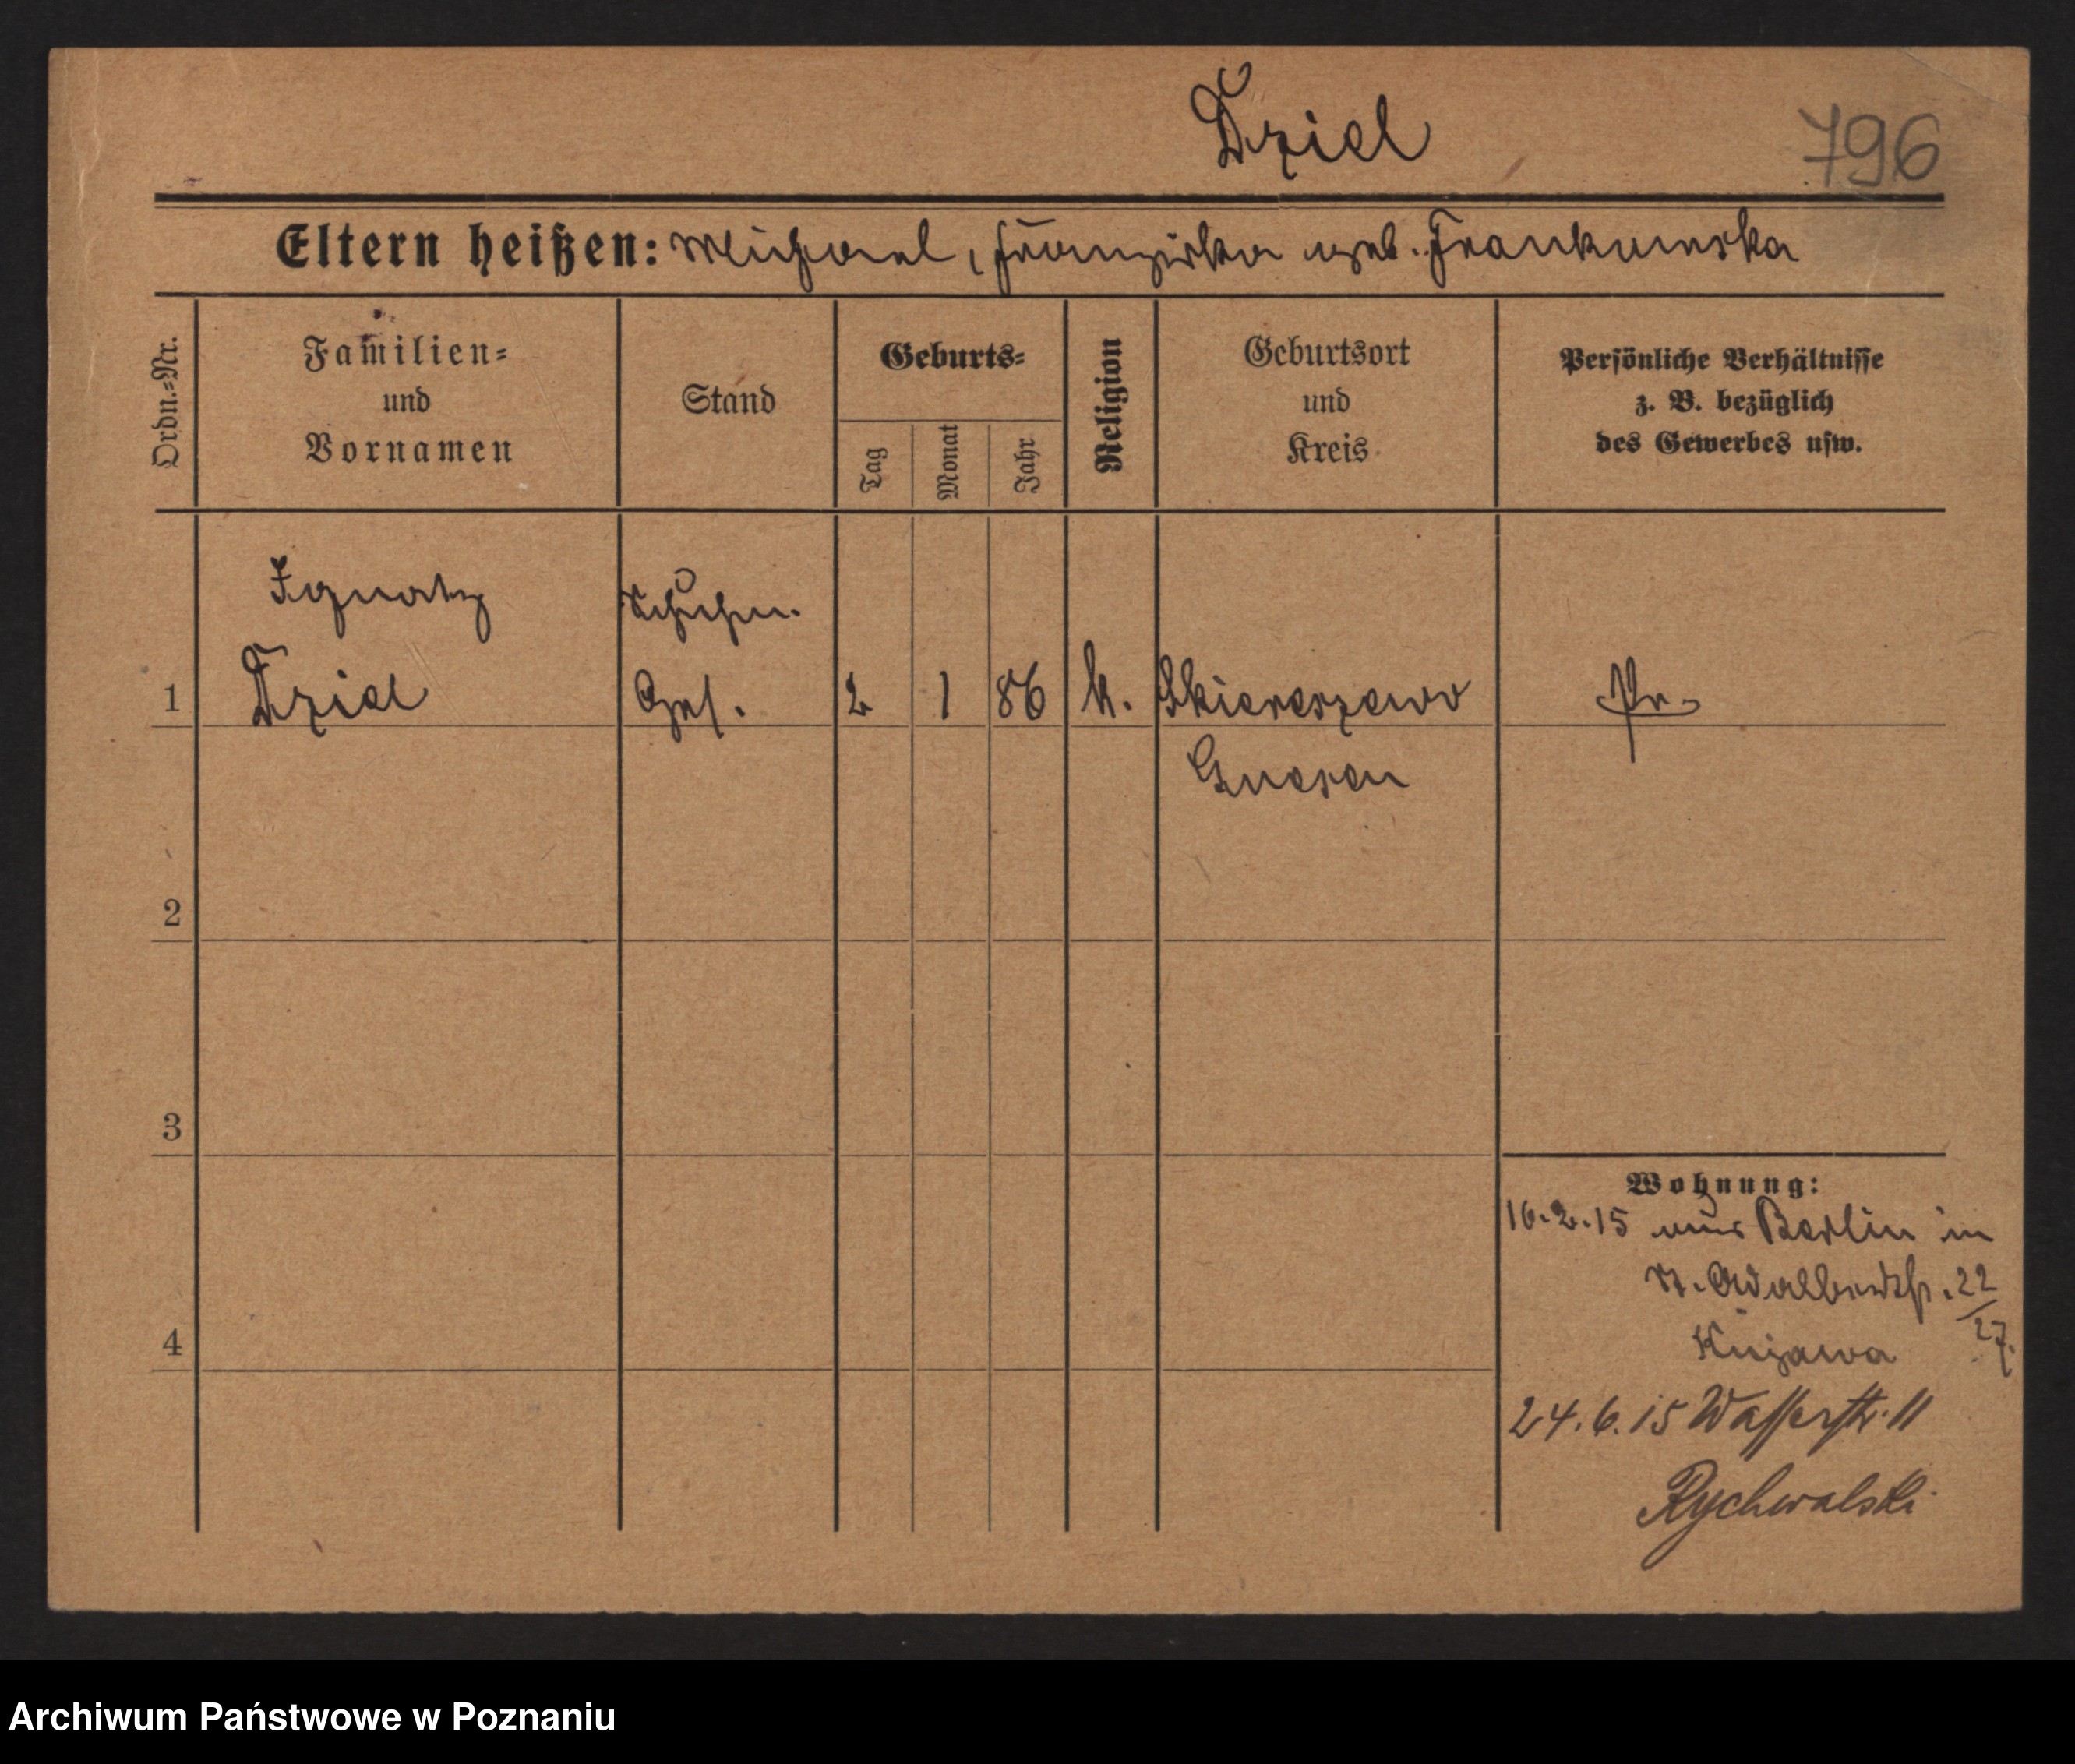 Dziel
796
Eltern heißen: Michael, Franziska geb. Frankowska
Ordn.-Nr.
Familien-
und
Vornamen
Stand
Geburts-
Tag
Monat
Jahr
Religion
Geburtsort
und
Kreis
Persönliche Verhältnisse
z. B. bezüglich
des Gewerbes usw.
Ignatz Schuhm.
1 Dziel Ges. 2 1 86 k. Skiereszewo Pr.
Gnesen
2
3
4
Wohnung:
16.2.15 aus Berlin in
St. Adalbertstr. 22/27.
Kujawa
24.6.15 Wasserstr. 11
Rychwalski
Archiwum Państwowe w Poznaniu